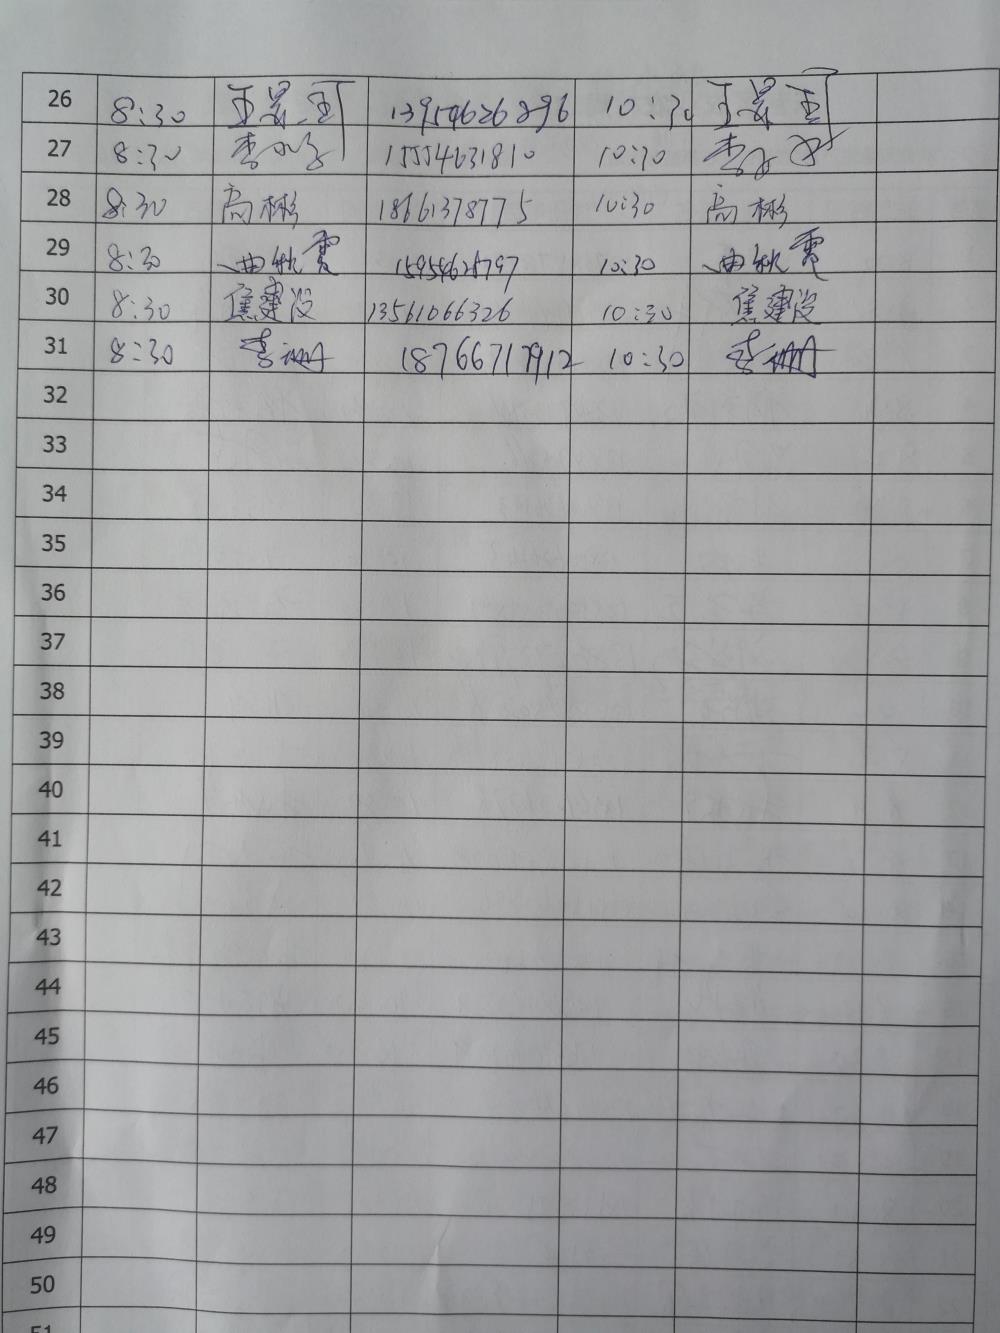 26 8:30 10:30
27 8:30 15554631810 10:30
28 8:30 高彬 18661378775 10:30 高彬
29 8:30 曲秋霞 10:30 曲秋霞
30 8:30 焦建设 13561066326 10:30 焦建设
31 8:30 李珊 18766717912 10:30 李珊
32
33
34
35
36
37
38
39
40
41
42
43
44
45
46
47
48
49
50
51